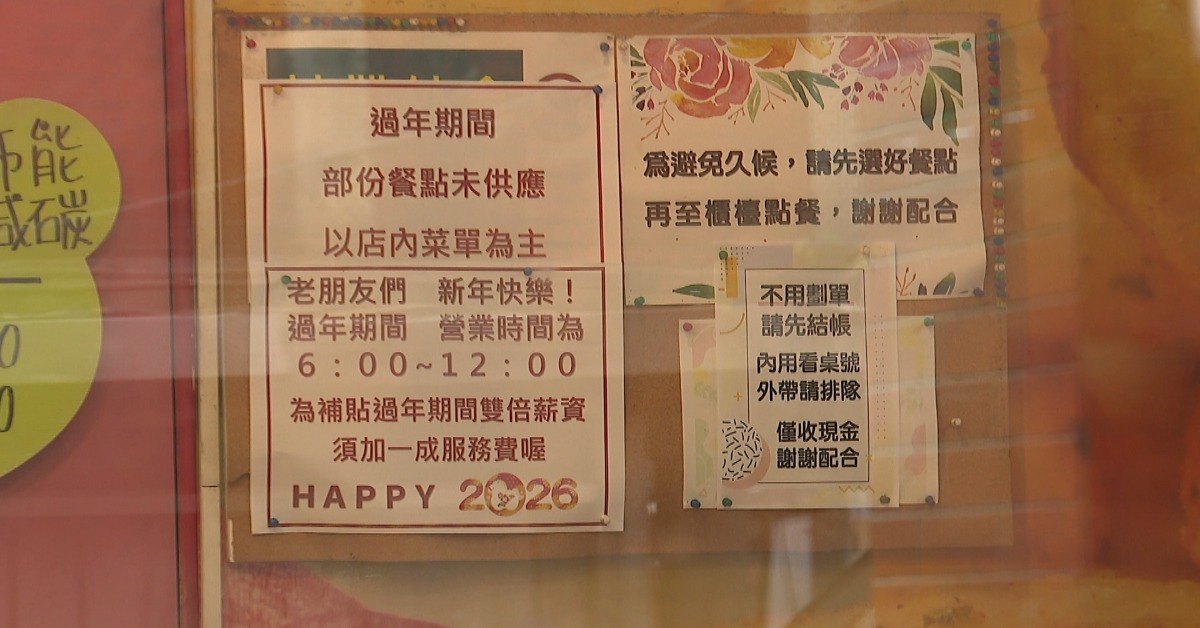 過年期間
部份餐點未供應
以店內菜單為主
老朋友們 新年快樂！
過年期間 營業時間為
6：00~12：00
為補貼過年期間雙倍薪資
須加一成服務費喔
HAPPY 2026
為避免久候，請先選好餐點
再至櫃檯點餐，謝謝配合
不用劃單
請先結帳
內用看桌號
外帶請排隊
僅收現金
謝謝配合
能
減碳
0
0